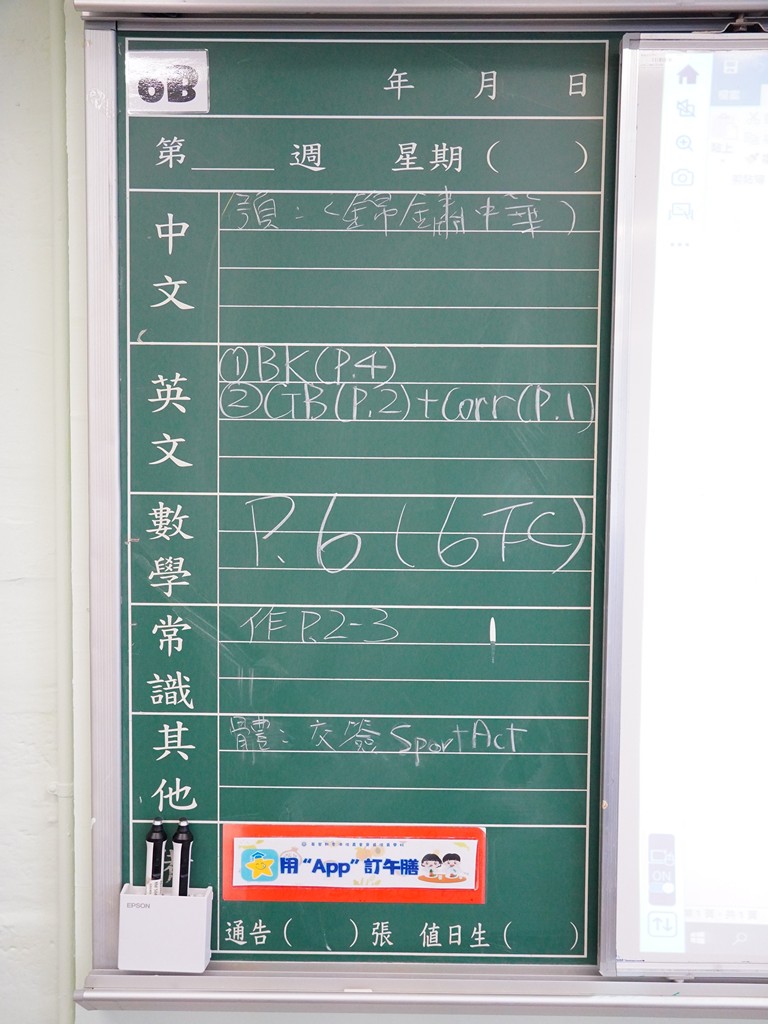 6B
年 月 日
第____週 星期( )
中文
預:《錦繡中華》
英文
①BK(P.4)
②GB(P.2)+Corr(P.1)
數學
P.6(6TC)
常識
作P.2-3
其他
體:交簽SportAct
用“App”訂午膳
EPSON
通告( )張 值日生( )
ON